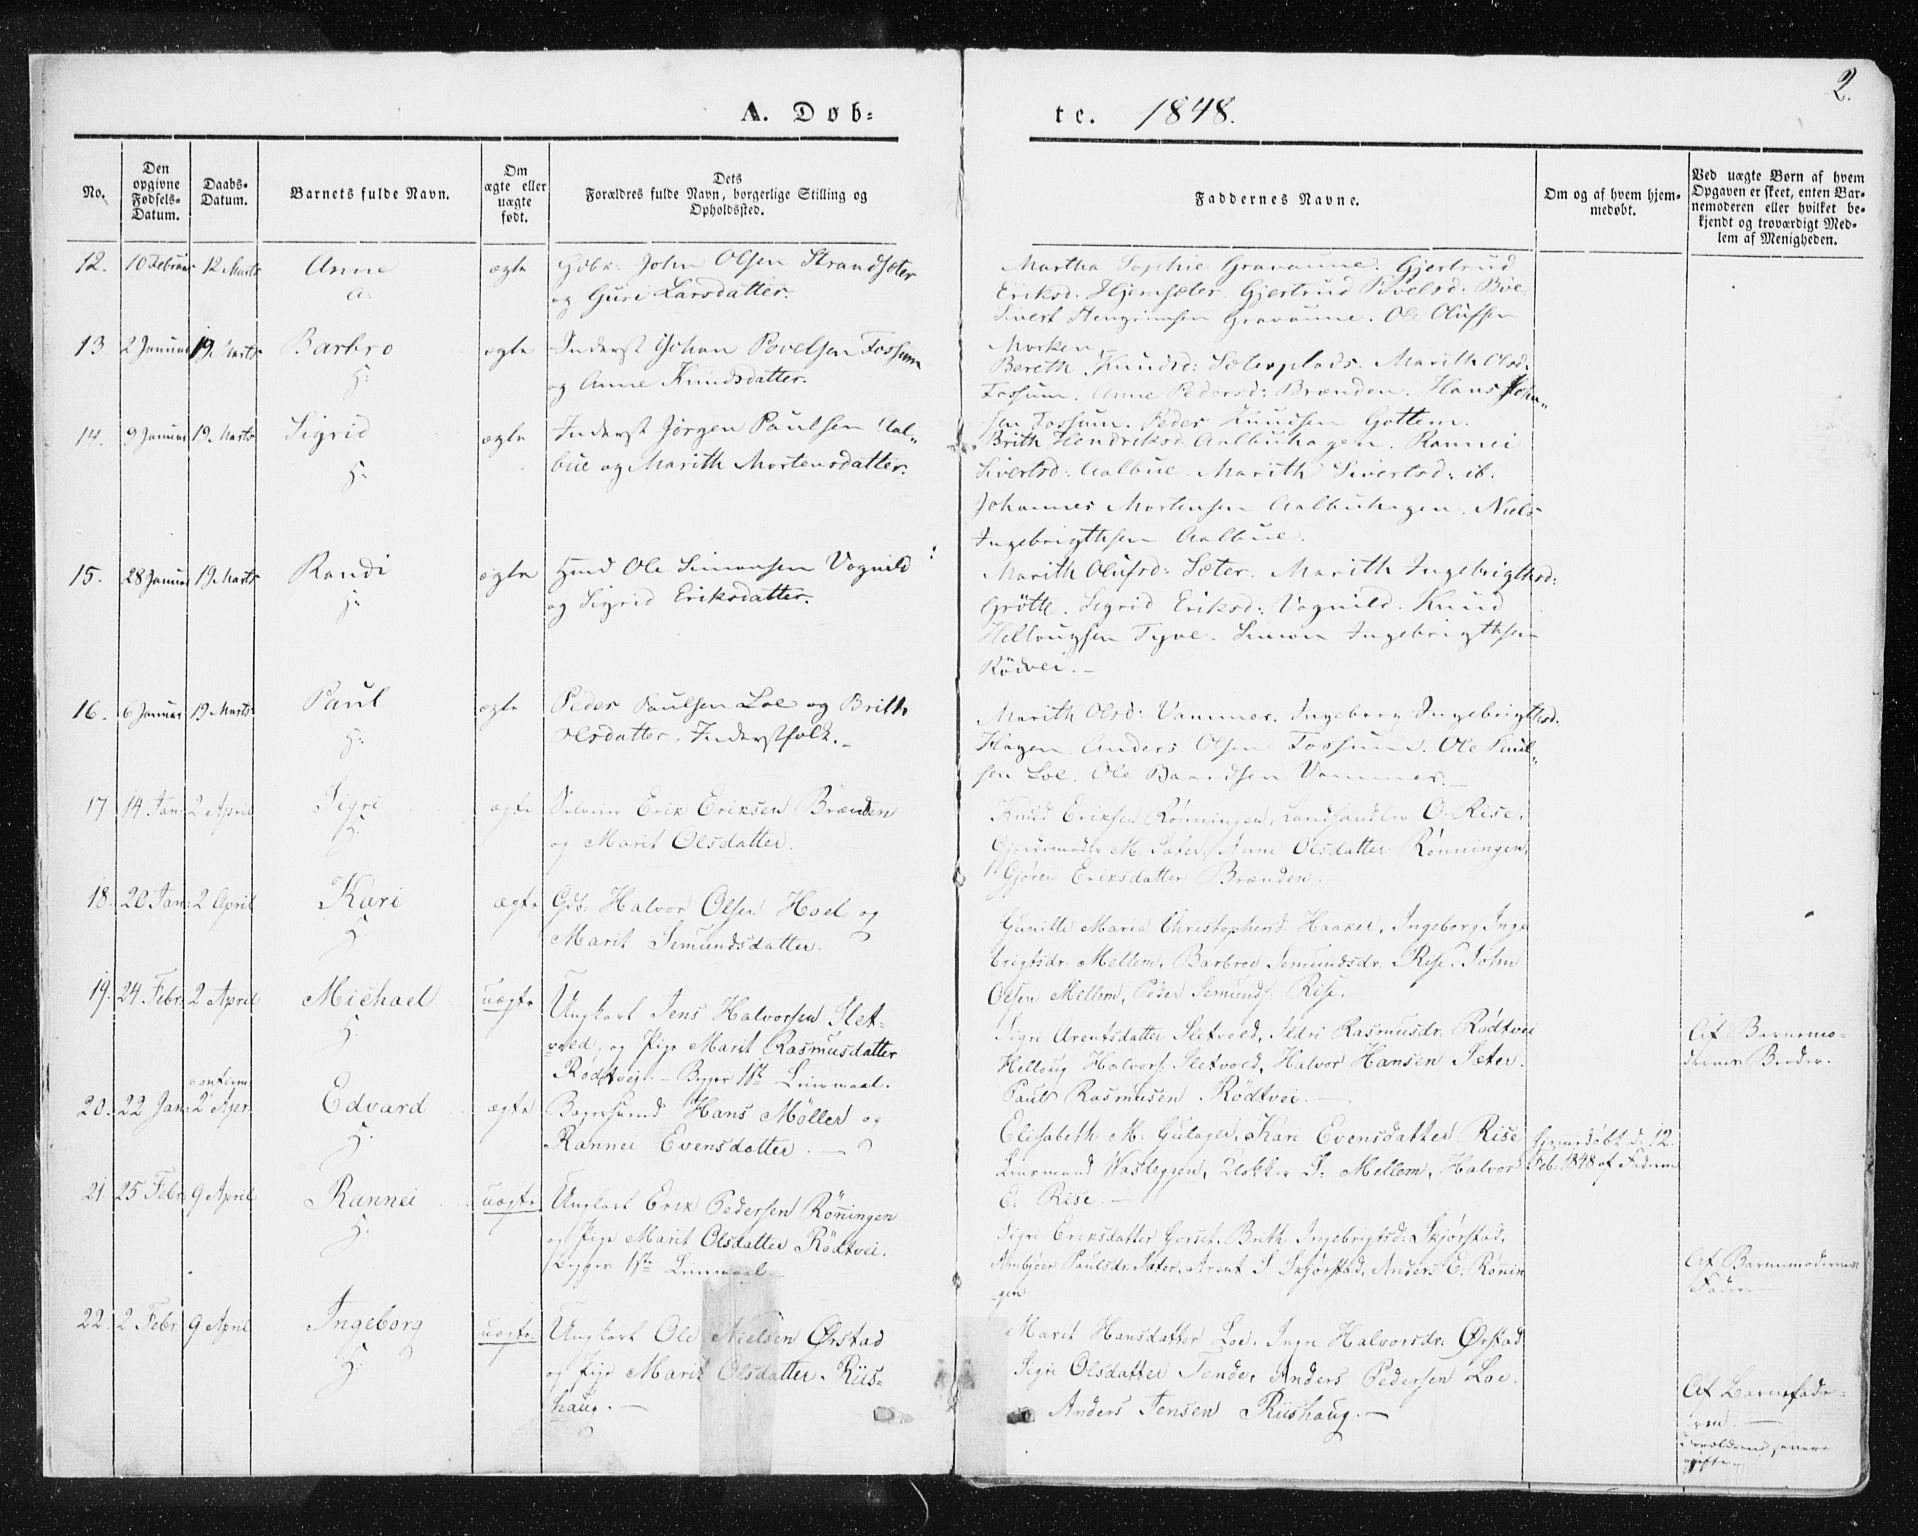 2.
A. Døb=
te. 1848.
No.
Den opgivne Fødsels-Datum.
Daabs-Datum.
Barnets fulde Navn.
Om ægte eller uægte født.
Dets Forældres fulde Navn, borgerlige Stilling og Opholdssted.
Faddernes Navne.
Om og af hvem hjemmedøbt.
Ved uægte Børn af hvem Opgaven er skeet, enten Barnemoderen eller hvilket bekjendt og troværdigt Medlem af Menigheden.
12. 10 Februar 12 Marts Anne ægte Gdbr: John Olsen Strandsæter
og Guri Larsdatter.
Martha Sophie Gravaune. Gjertrud
Eriksd: Hjemsæter. Gjertrud Povelsd: Bøe
Sivert Stengrimsen Gravaune. Ole Olufsen
Morken.
13 2 Januar 19. Marts Barbro ægte Inderst Johan Povelsen Fossum
H:
og Anne Knudsdatter.
Bereth Knudsd: Sæterplads. Marith Olsd:
Fossum. Anne Pedersd: Brænden. Hans John=
sen Fossum. Peder Knudsen Gottem.
14. 9 Januar 19. Marts Sigrid ægte Inderst Jørgen Paulsen Aal=
H:
bue og Marith Mortensdatter.
Brith Hendriksd: Aalbuhagen. Rannei
Sivertsd: Aalbue. Marith Sivertsd: ib.
Johannes Mortensen Aalbuhagen. Niels
Ingebrigthsen Aalbue.
15. 28 Januar 19 Marts Randi ægte Gmd Ole Simonsen Vognild
H:
og Sigrid Eriksdatter.
Marith Olufsd: Sæter. Marith Ingebrigthsd:
Grøtte. Sigrid Eriksd: Vognild. Knud
Hellougsen Tyve. Simon Ingebrigthsen
Rødvei. -
16. 6 Januar 19 Marts Paul ægte Peder Paulsen Loe og Brith
H:
Olsdatter. Inderstfolk. -
Marith Olsd: Vammer. Ingeborg Ingebrigthsd:
Hagen Anders Olsen Fossum. Ole Paul=
sen Loe. Ole Baardsen Vammer.
17. 14 Jan: 2 April Sigri ægte Erik Eriksen Brænden
H.
og Marit Olsdatter.
Knud Eriksen Rønningen, Landhandler O. Rise,
Gjordemoder M. Sæter, Anne Olsdatter Rønningen,
Gjøren Eriksdatter Brænden.
18. 20 Jan: 2 April Kari ægte Gdb: Halvor Olsen Hoel og
H.
Marit Semundsdatter.
Gunille Maria Christophersd. Haaker, Ingeborg Inge
brigtsdr. Mellem, Barbroe Semundsdr. Rise, John
Olsen Mellem, Peder Semunds. Rise.
19. 24 Febr: 2 April Michael uægte Ungkarl Jens Halvorsen Slet=
H.
vold, og Pige Marit Rasmusdatter
Rødtvei. - Begges 1ste Leiermaal.
Sigri Arentsdatter Sletvold, Sidri Rasmusdr. Rødtvei
Helloug Halvors. Sletvold, Halvor Hansen Sæter.
Paul Rasmusen Rødtvei. -
Af Barnemo=
derens Broder.
confirm
20. 22 Jan: 2 Apr. Edvard ægte Hans Møller og
H.
Rannei Evensdatter. -
Elisabeth M. Gulager, Kari Evensdatter Rise
Lensmand Wasleggen, Klokker S. Mellem, Halvor
E. Rise. -
Hjemmedøbt d. 12
Feb. 1848 af Faderen
21. 25 Febr. 9 April Rannei uægte Ungkarl Erik Pedersen Röningen
H.
og Pige Marit Olsdatter Rødtvei.
Begges 1ste Leiermaal.
Sigri Eriksdatter Gorset, Brith Ingebrigtsd: Skjørstad,
Ambjør Paulsdr. Sæter, Arent S. Skjørstad, Anders E. Rønin
gen
Af Barnemoderens
Fader. -
22. 2 Febr. 9 April Ingeborg uægte Ungkarl Ole Nielsen Ørstad
H.
og Pige Marit Olsdatter Riis=
haug. -
Marit Hansdatter Loe, Ingri Halvorsdr: Ørstad
Sigri Olsdatter Tende, Anders Pedersen Loe.
Anders Jensen Riishaug. -
Af Barnefade=
ren. -
Forældrene senere
gifte.